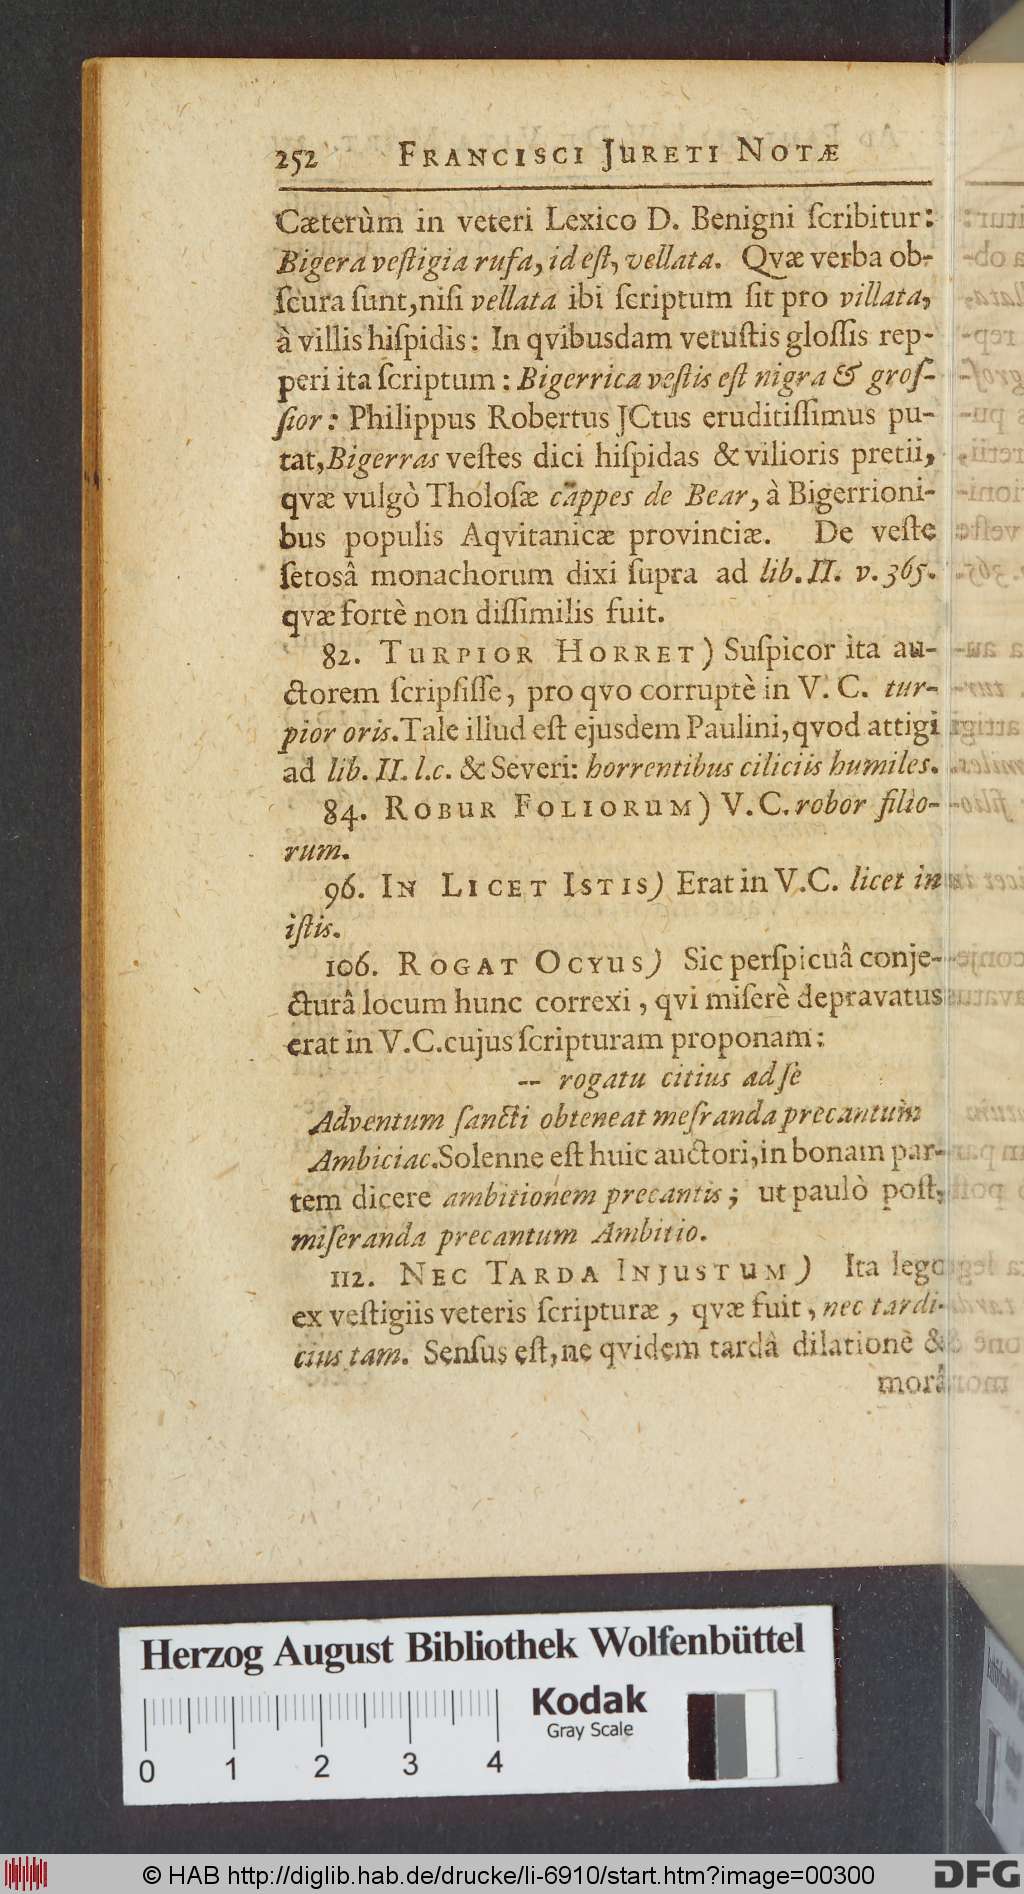 252 FRANCISCI JURETI NOTÆ
Cæterùm in veteri Lexico D. Benigni ſcribitur:
Bigera veſtigia rufa, id eſt, vellata. Qvæ verba ob-
ſcura ſunt, niſi vellata ibi ſcriptum ſit pro villata,
à villis hiſpidis: In qvibusdam vetuſtis gloſſis rep-
peri ita ſcriptum: Bigerrica veſtis eſt nigra & groſ-
ſior: Philippus Robertus JCtus eruditiſſimus pu-
tat, Bigerras veſtes dici hiſpidas & vilioris pretii,
qvæ vulgò Tholoſæ cappes de Bear, à Bigerrioni-
bus populis Aqvitanicæ provinciæ. De veſte
ſetosâ monachorum dixi ſupra ad lib. II. v. 365.
qvæ fortè non diſſimilis fuit.
82. TURPIOR HORRET) Suſpicor ita au-
ctorem ſcripſiſſe, pro qvo corruptè in V. C. tur-
pior oris. Tale illud eſt ejusdem Paulini, qvod attigi
ad lib. II. l.c. & Severi: horrentibus ciliciis humiles.
84. ROBUR FOLIORUM) V.C. robor filio-
rum.
96. IN LICET ISTIS) Erat in V.C. licet in
iſtis.
106. ROGAT OCYUS) Sic perſpicuâ conje-
cturâ locum hunc correxi, qvi miſerè depravatus
erat in V.C. cujus ſcripturam proponam:
-- rogatu citius adſe
Adventum ſancti obteneat meſranda precantum
Ambiciac. Solenne eſt huic auctori, in bonam par-
tem dicere ambitionem precantis; ut paulò poſt,
miſeranda precantum Ambitio.
112. NEC TARDA INJUSTUM) Ita lego
ex veſtigiis veteris ſcripturæ, qvæ fuit, nec tardi-
cius tam. Senſus eſt, ne qvidem tardâ dilatione &
morâ
Herzog August Bibliothek Wolfenbüttel
Kodak
Gray Scale
0 1 2 3 4
© HAB http://diglib.hab.de/drucke/li-6910/start.htm?image=00300
DFG